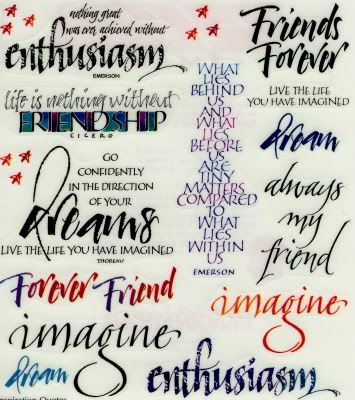 nothing great
was ever achieved without
enthusiasm
EMERSON
life is nothing without
FRIENDSHIP
CICERO
GO
CONFIDENTLY
IN THE DIRECTION
OF YOUR
dreams
LIVE THE LIFE YOU HAVE IMAGINED
THOREAU
Forever Friend
imagine
dream
WHAT
LIES
BEHIND
US
AND
WHAT
LIES
BEFORE
US
ARE
TINY
MATTERS
COMPARED
TO
WHAT
LIES
WITHIN
US
EMERSON
Friends
Forever
LIVE THE LIFE
YOU HAVE IMAGINED
dream
always
my
friend
imagine
enthusiasm
Inspiration Quotes